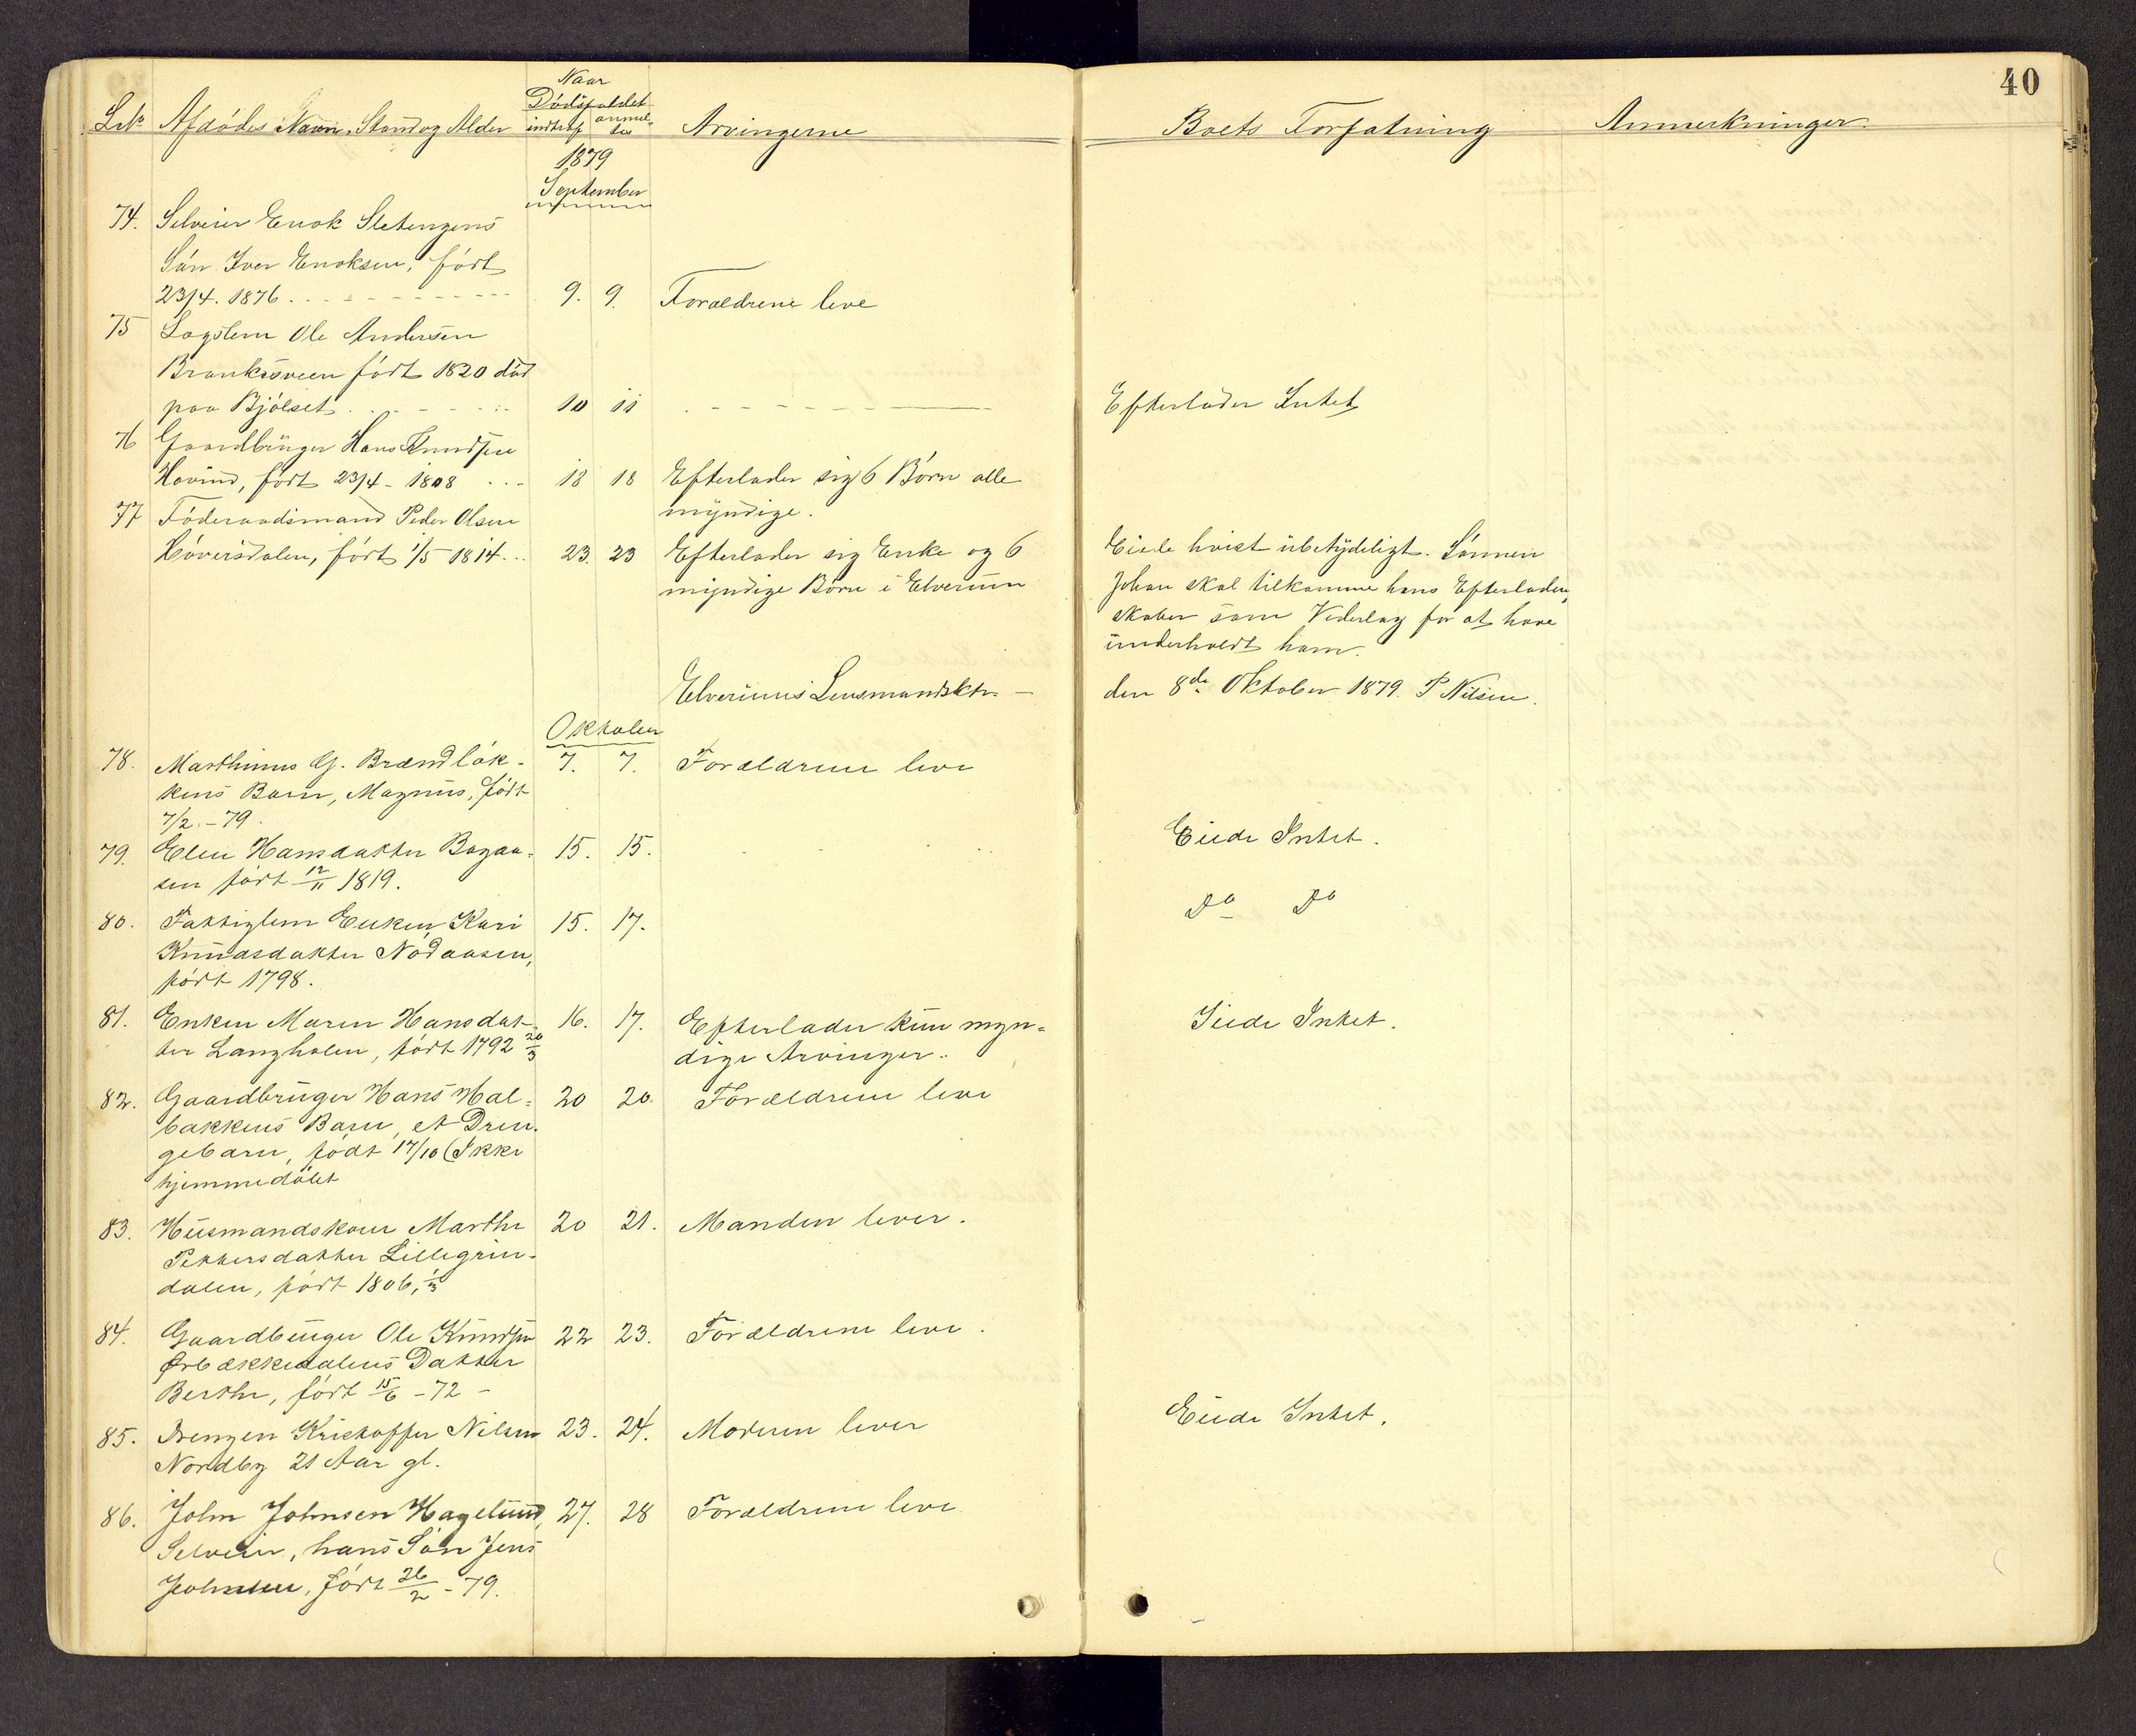 40
Naar
Dødsfaldet
Afdødes Navn, Stand og Alder indtraf anmel-
des Arvingerne Boets Forfatning Anmerkninger.
1879
September
74. Selveier Enok Sletengens
Søn Iver Enoksen, født
23/4. 1876. 9. 9. Forældrene leve
75 Lægslem Ole Andersen
født 1820 død
paa Bjølset 10 11 Efterlader Intet
76 Gaardbruger Hans Knudsen
Hovind, født 23/4 - 1808 18 18 Efterlader sig 6 Børn alle
myndige.
77 Føderaadsmand Peder Olsen
Løversdalen, født 1/5 1814 23. 23 Efterlader sig Enke og 6
myndige Børn i Elverum
Eiede høist ubetydeligt. Sønnen
Johan skal tilkomme hans Efterladen-
skaber som Vederlag for at have
underholdt ham.
Elverums Lensmandsktr. —
den 8de Oktober 1879. P Nilsen.
Oktober
78. Marthinus G. Brændløk- 7. 7. Forældrene leve
kens Barn, Magnus, født
7/2 - 79.
79. Elen Hansdatter Bagaa- 15. 15. Eiede Intet.
sen født 12/11 1819.
80. Fattiglem Enken Kari 15. 17. Do Do
Knudsdatter Nødaasen,
født 1798.
81. Enken Maren Hansdat- 16. 17. Efterlader kun myn- Eiede Intet.
ter Langholen, født 1792 26/3 dige Arvinger.
82. Gaardbruger Hans Hal- 20 20 Forældrene leve
bakkens Barn, et Dren-
gebarn, født 17/10 (Ikke
hjemmedøbt
83. Husmandskone Marthe 20 21. Manden lever.
Pettersdatter Lillegrin-
dalen, født 1806, 1/3
84. Gaardbruger Ole Knudsen 22 23. Forældrene leve.
Ørbækkedalens Datter
Berthe, født 15/6 - 72 -
85. Drengen Kristoffer Nilsen 23. 24. Moderen lever Eiede Intet.
Nordby 21 Aar gl.
86. John Johnsen Hagelund, 27. 28 Forældrene leve
Selveier, hans Søn Jens
Johnsen, født 26/2 - 79.